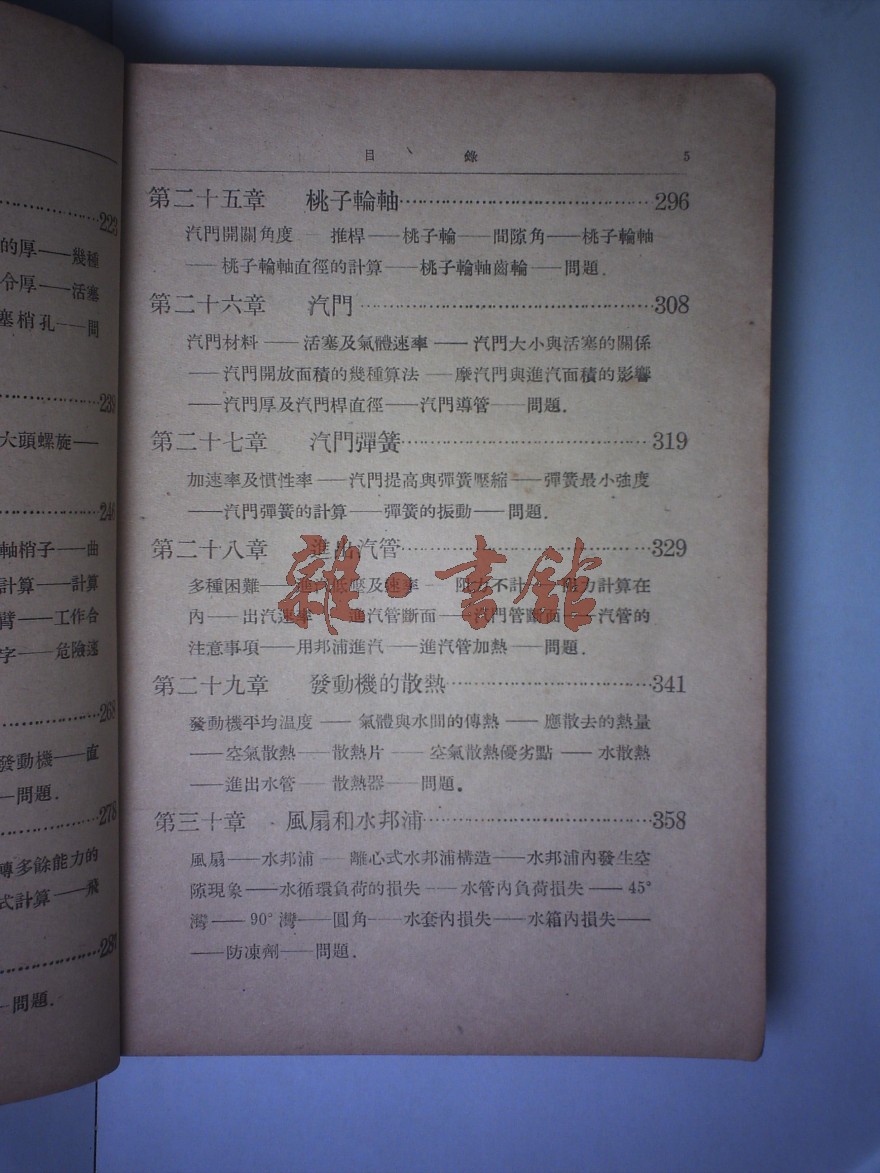 223
的厚——幾種
令厚——活塞
塞梢孔——問
239
大頭螺旋——
軸梢子——曲
計算——計算
臂——工作合
字——危險速
268
發動機——直
—問題.
278
轉多餘能力的
式計算——飛
—問題.
目錄 5
第二十五章 桃子輪軸……296
汽門開關角度——推桿——桃子輪——間隙角——桃子輪軸
——桃子輪軸直徑的計算——桃子輪軸齒輪——問題.
第二十六章 汽門……308
汽門材料——活塞及氣體速率——汽門大小與活塞的關係
——汽門開放面積的幾種算法——摩汽門與進汽面積的影響
——汽門厚及汽門桿直徑——汽門導管——問題.
第二十七章 汽門彈簧……319
加速率及慣性率——汽門提高與彈簧壓縮——彈簧最小強度
——汽門彈簧的計算——彈簧的振動——問題.
第二十八章 進出汽管……329
多種困難——進汽低壓及速率——阻力不計——阻力計算在
內——出汽速率——進汽管斷面——汽門管斷面——汽管的
注意事項——用邦浦進汽——進汽管加熱——問題.
第二十九章 發動機的散熱……341
發動機平均溫度——氣體與水間的傳熱——應散去的熱量
——空氣散熱——散熱片——空氣散熱優劣點——水散熱
——進出水管——散熱器——問題.
第三十章 風扇和水邦浦……358
風扇——水邦浦——離心式水邦浦構造——水邦浦內發生空
隙現象——水循環負荷的損失——水管內負荷損失——45°
灣——90°灣——圓角——水套內損失——水箱內損失——
——防凍劑——問題.
雜·書館